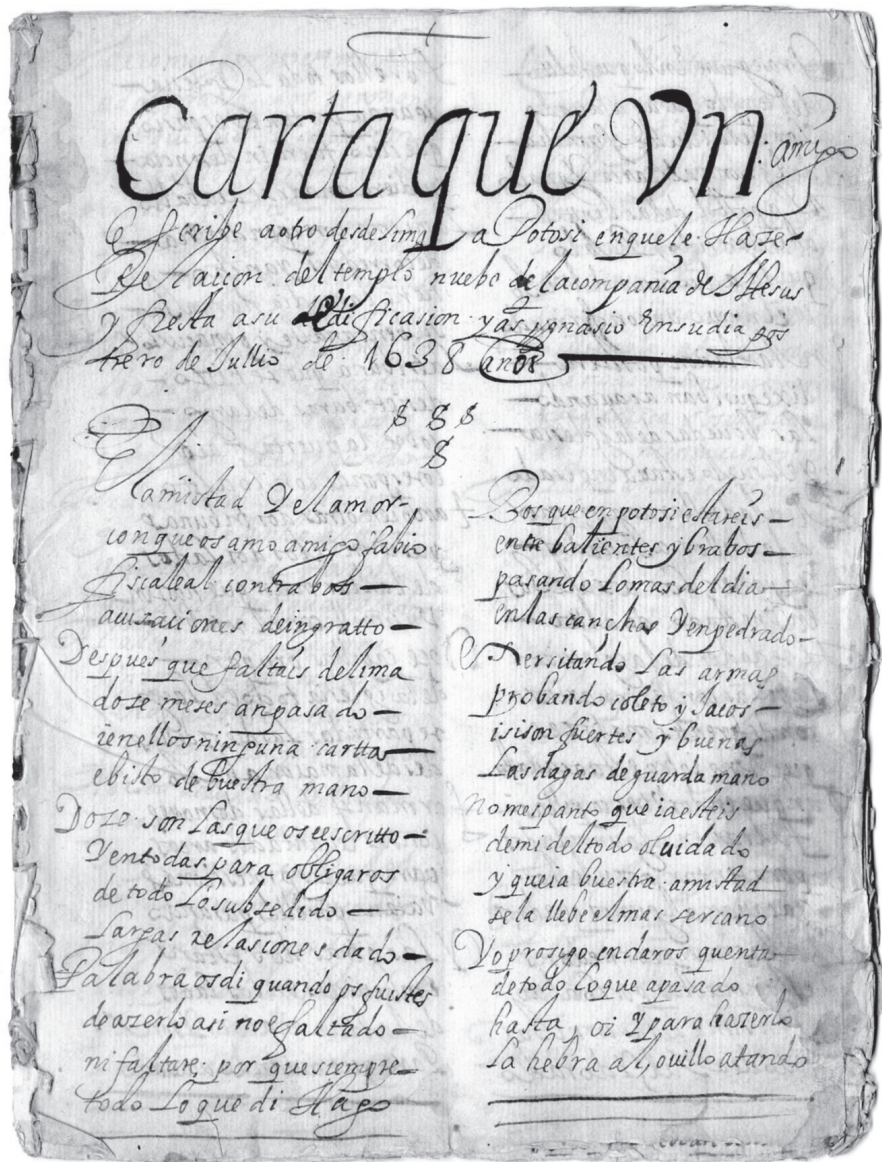 Carta que Vn amigo
Escribe a otro desde Lima a Potosi en que le Haze
Relacion del templo nuebo de la compania de Jhesus
y fiesta a su dedificasion y a s ygnasio En su dia pos
trero de Jullio de 1638 anos
La amistad y el amor
con que os amo amigo fabio
fiscaleal contra bos
acuzaciones de ingratto
Despues que faltais de lima
doze meses an pasado
i en ellos ninguna cartta
e bisto de buestra mano
Doze son las que os e escritto
Y en todas para obligaros
de todo Lo subsedido
Largas relasiones dado
Palabra os di quando os fuistes
de azerlo asi no e faltado
ni faltare por que siempre
todo Lo que di Hago
Bos que en potosi estareis
entre balientes y brabos
pasando lo mas del dia
en las canchas Y enpedrado
Exersitando Las armas
probando coleto y Jacos
i si son fuertes y buenas
Las dagas de guarda mano
No me spanto que ia esteis
de mi del todo oluidado
y que ia buestra amistad
se la llebe el mas sercano
Yo prosigo en daros quenta
de todo lo que a pasado
hasta oi Y para hazerlo
La hebra al ouillo atando